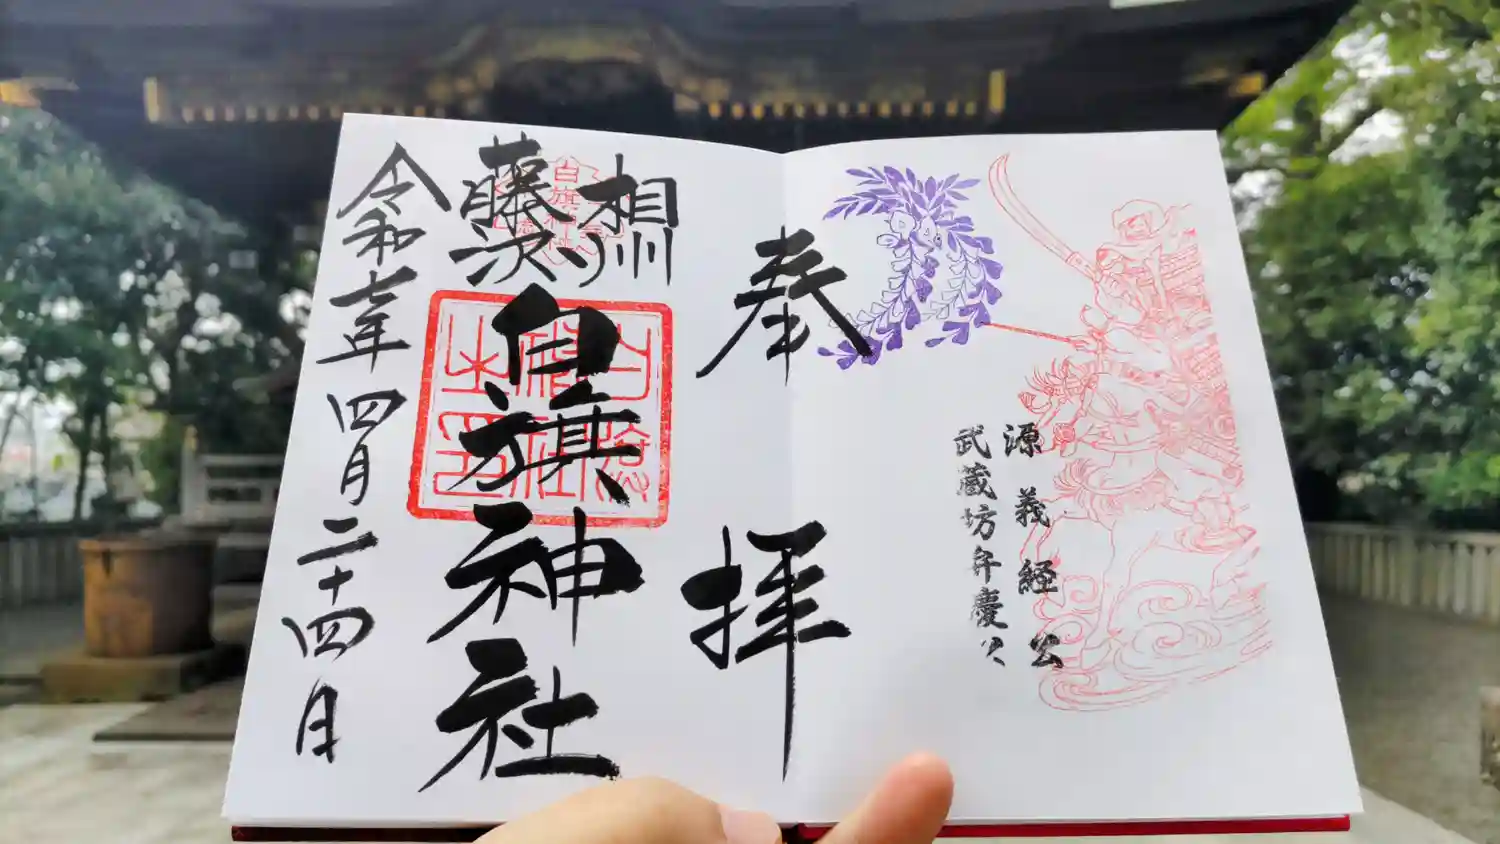 源義経公
武蔵坊弁慶公
奉拝
相州
藤沢
白旗神社
令和七年四月二十四日